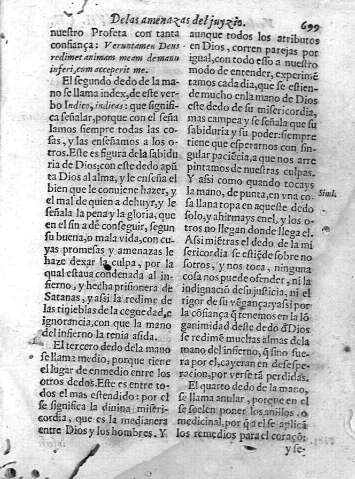 De las amenazas del juyzio.
699
nuestro Profeta con tanta
confiança: Veruntamen Deus
redimet animam meam de manu
inferi, cum acceperit me.
El segundo dedo de la mano
se llama index, de este verbo
Indico, indicas: que significa
señalar, porque con el señalamos
siempre todas las cosas
, y las enseñamos a los otros.
Este es figura de la sabiduria
de Dios: con este dedo apunta
Dios al alma, y le enseña el
bien que le conuiene hazer, y
el mal de quien a de huyr, y le
señala la pena y la gloria, que
en el fin a de conseguir, segun
su buena, o mala vida, con cuyas
promesas y amenazas le
haze dexar la culpa, por la
qual estaua condenada al infierno
, y hecha prisionera de
Satanas, y assi la redime de
las tinieblas de la ceguedad, e
ignorancia, con que la mano
del infierno la tenia asida.
El tercero dedo de la mano
se llama: medio, porque tiene
el lugar de en medio entre los
otros dedos. Este es entre todos
el mas estendido: por el
se significa la diuina misericordia
, que es la medianera
entre Dios y los hombres. Y
aunque todos los atributos
en Dios, corren parejas por
igual, con todo esso a nuestro
modo de entender, experimẽ
tamos cada dia, que se estiende
mucho en la mano de Dios
este dedo de su misericordia,
mas campea y se señala que su
sabiduria y su poder: siempre
tiene que esperarnos con singular
paciẽcia, a que nos arre
pintamos de nuestras culpas.
Y assi como quando tocays
la mano, de punta, en vna cosa
llana topa en aqueste dedo
solo, y ahi mays enel, y los otros
no llegan donde llega el.
Assi miẽtras el dedo de la misericordia
se estiẽde sobre nosotros
, y nos toca, ninguna
cosa nos puede ofender, ni la
indignaciõ de su justicia, ni el
rigor de su vẽgança: y assi por
la cõfiança q̃ tenemos en la lõ
ganimidad deste dedo d̃ Dios
se redimẽ muchas almas de la
mano del infierno, q̃ sino fuera
por el, cayeran en desesperacion
, por verse tã perdidas.
El quarto dedo de la mano,
se llama anular, porque en el
se suelen poner los anillos. o
medicinal, por q̃ a el se aplicã
los remedios para el coraçõ:
y se-
Simil.